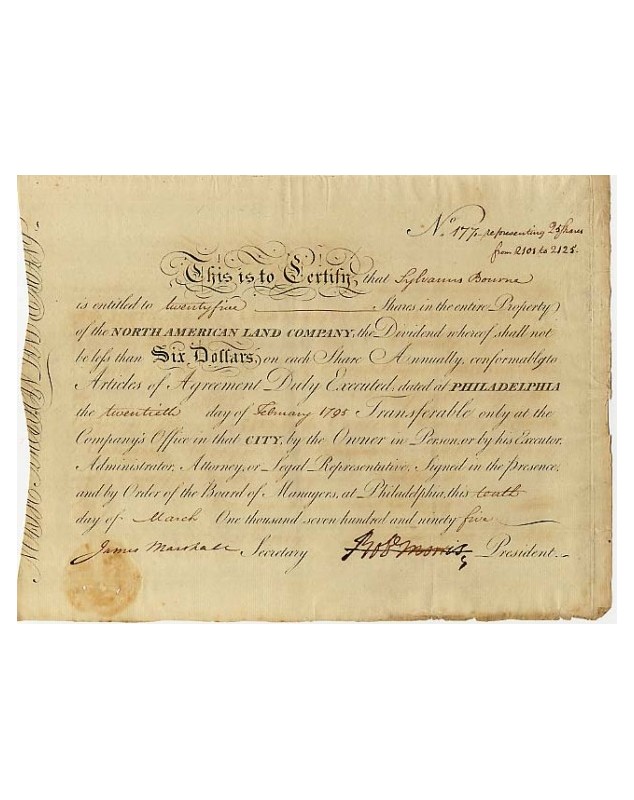 No. 177. representing 25 shares
from 2101 to 2125.
This is to Certify, that Sylvanus Bourne
is entitled to twentyfive Shares in the entire Property
of the NORTH AMERICAN LAND COMPANY, the Dividend whereof shall not
be less than Six Dollars, on each Share Annually, conformably to
Articles of Agreement Duly Executed, dated at PHILADELPHIA
the twentieth day of February 1795 Transferable only at the
Company's Office in that CITY, by the Owner in Person, or by his Executor,
Administrator, Attorney, or Legal Representative. Signed in the presence,
and by Order of the Board of Managers, at Philadelphia, this tenth
day of March One thousand seven hundred and ninety five
James Marshall Secretary Rob Morris President.